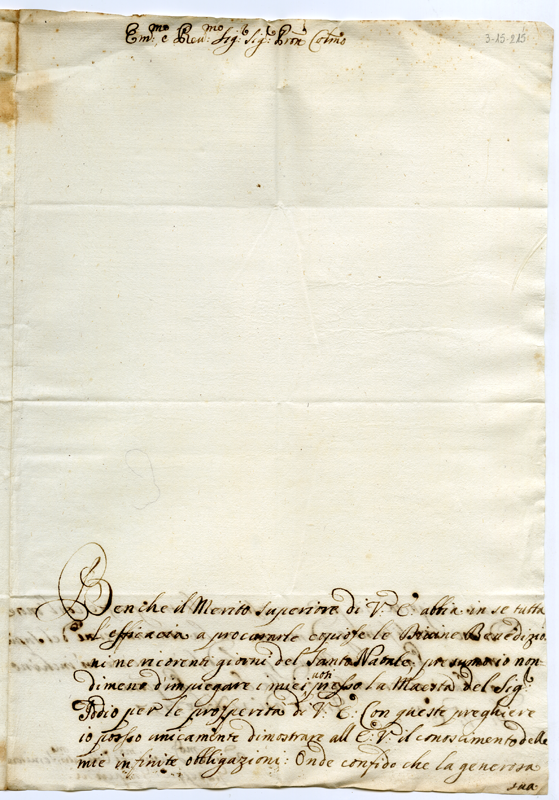 Em.mo e Rev.mo Sig.r Sig.r Pron Colmo
3-15-215
Benche il Merito superiore di V. E. abbia in se tutta
l efficacia a procurarle copiose le Divine Benedizio
ni ne ricorenti giorni del Santo Natale, presumo io non
dimeno d'impiegare i miei voti presso la Maestà del Sig.r
Iddio per le prosperità di V. E. Con queste preghiere
io posso unicamente dimostrare all E. V. il conoscimento delle
mie infinite obbligazioni: Onde confido che la generosa
sua